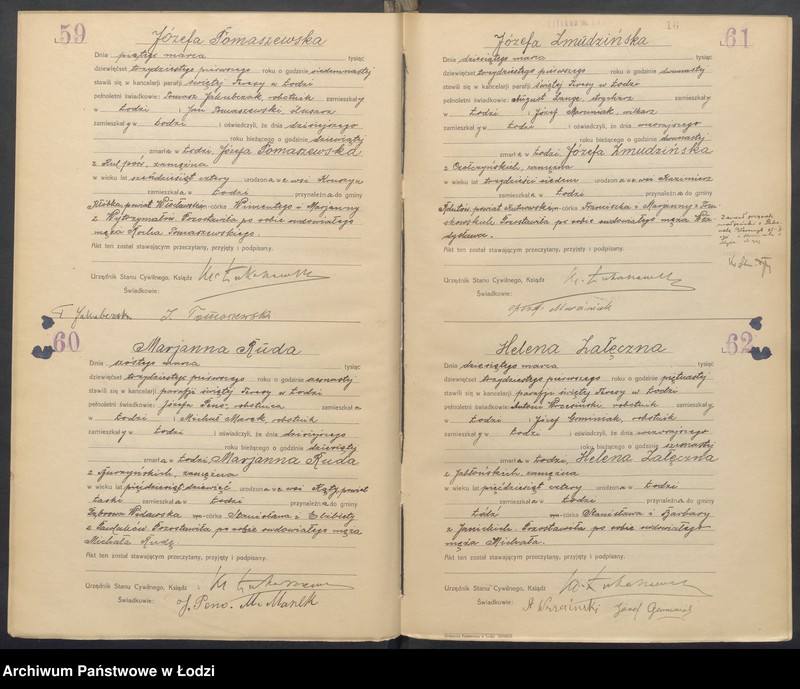 59
Józefa Tomaszewska
Dnia piątego marca tysiąc
dziewięćset trzydziestego pierwszego roku o godzinie siedemnastej
stawili się w kancelarji parafji świętej Teresy w Łodzi
pełnoletni świadkowie: Tomasz Jakubczak, robotnik zamieszkały
w Łodzi i Jan Tomaszewski, ślusarz
zamieszkały w Łodzi i oświadczyli, że dnia dzisiejszego
roku bieżącego o godzinie dziewiątej
zmarła w Łodzi, Józefa Tomaszewska
z zamężna
w wieku lat sześćdziesiąt cztery urodzona we wsi
zamieszkała w Łodzi przynależna do gminy
Kłóbka, powiat Włocławski, córka Wincentego i Marjanny
z Pozostawiła po sobie owdowiałego
męża Tomaszewskiego.
Akt ten został stawającym przeczytany, przyjęty i podpisany.
Urzędnik Stanu Cywilnego, Ksiądz
Świadkowie:
T. Jakubczak J. Tomaszewski
60
Marjanna Ruda
Dnia szóstego marca tysiąc
dziewięćset trzydziestego pierwszego roku o godzinie
stawili się w kancelarji parafji świętej Teresy w Łodzi
pełnoletni świadkowie: Józefa Peno, robotnica zamieszkała
w Łodzi i Michał Marek, robotnik
zamieszkały w Łodzi i oświadczyli, że dnia dzisiejszego
roku bieżącego o godzinie dziesiątej
zmarła w Łodzi, Marjanna Ruda
z zamężna
w wieku lat pięćdziesiąt dziewięć urodzona we wsi Kąty, powiat
Łaski zamieszkała w Łodzi przynależna do gminy
Dąbrowa Widawska córka Stanisława i Elżbiety
z Pozostawiła po sobie owdowiałego męża
Michała Rudę
Akt ten został stawającym przeczytany, przyjęty i podpisany.
Urzędnik Stanu Cywilnego, Ksiądz
Świadkowie: J. Peno. M. Marek
16
61
Józefa Żmudzińska
Dnia dziesiątego marca tysiąc
dziewięćset trzydziestego pierwszego roku o godzinie dwunastej
stawili się w kancelarji parafji świętej Teresy w Łodzi
pełnoletni świadkowie: August Lange, zamieszkały
w Łodzi i Józef
zamieszkały w Łodzi i oświadczyli, że dnia wczorajszego
roku bieżącego o godzinie dwunastej
zmarła w Łodzi, Józefa Żmudzińska
z zamężna
w wieku lat trzydzieści siedem urodzona we wsi Kazimierz
zamieszkała w Łodzi przynależna do gminy
powiat córka Franciszka i Marjanny z
Pozostawiła po sobie owdowiałego męża Wła-
dysława.
Akt ten został stawającym przeczytany, przyjęty i podpisany.
Urzędnik Stanu Cywilnego, Ksiądz
Świadkowie:
62
Helena Załęczna
Dnia dziesiątego marca tysiąc
dziewięćset trzydziestego pierwszego roku o godzinie piętnastej
stawili się w kancelarji parafji świętej Teresy w Łodzi
pełnoletni świadkowie: Antoni robotnik zamieszkały
w Łodzi i Józef robotnik
zamieszkały w Łodzi i oświadczyli, że dnia wczorajszego
roku bieżącego o godzinie
zmarła w Łodzi, Helena Załęczna
z Jabłońskich, zamężna
w wieku lat pięćdziesiąt cztery urodzona w Łodzi
zamieszkała w Łodzi przynależna do gminy
Łódź córka Stanisława i Barbary
z Janickich. Pozostawiła po sobie owdowiałego
męża Michała.
Akt ten został stawającym przeczytany, przyjęty i podpisany.
Urzędnik Stanu Cywilnego, Ksiądz
Świadkowie:
Archiwum Państwowe w Łodzi